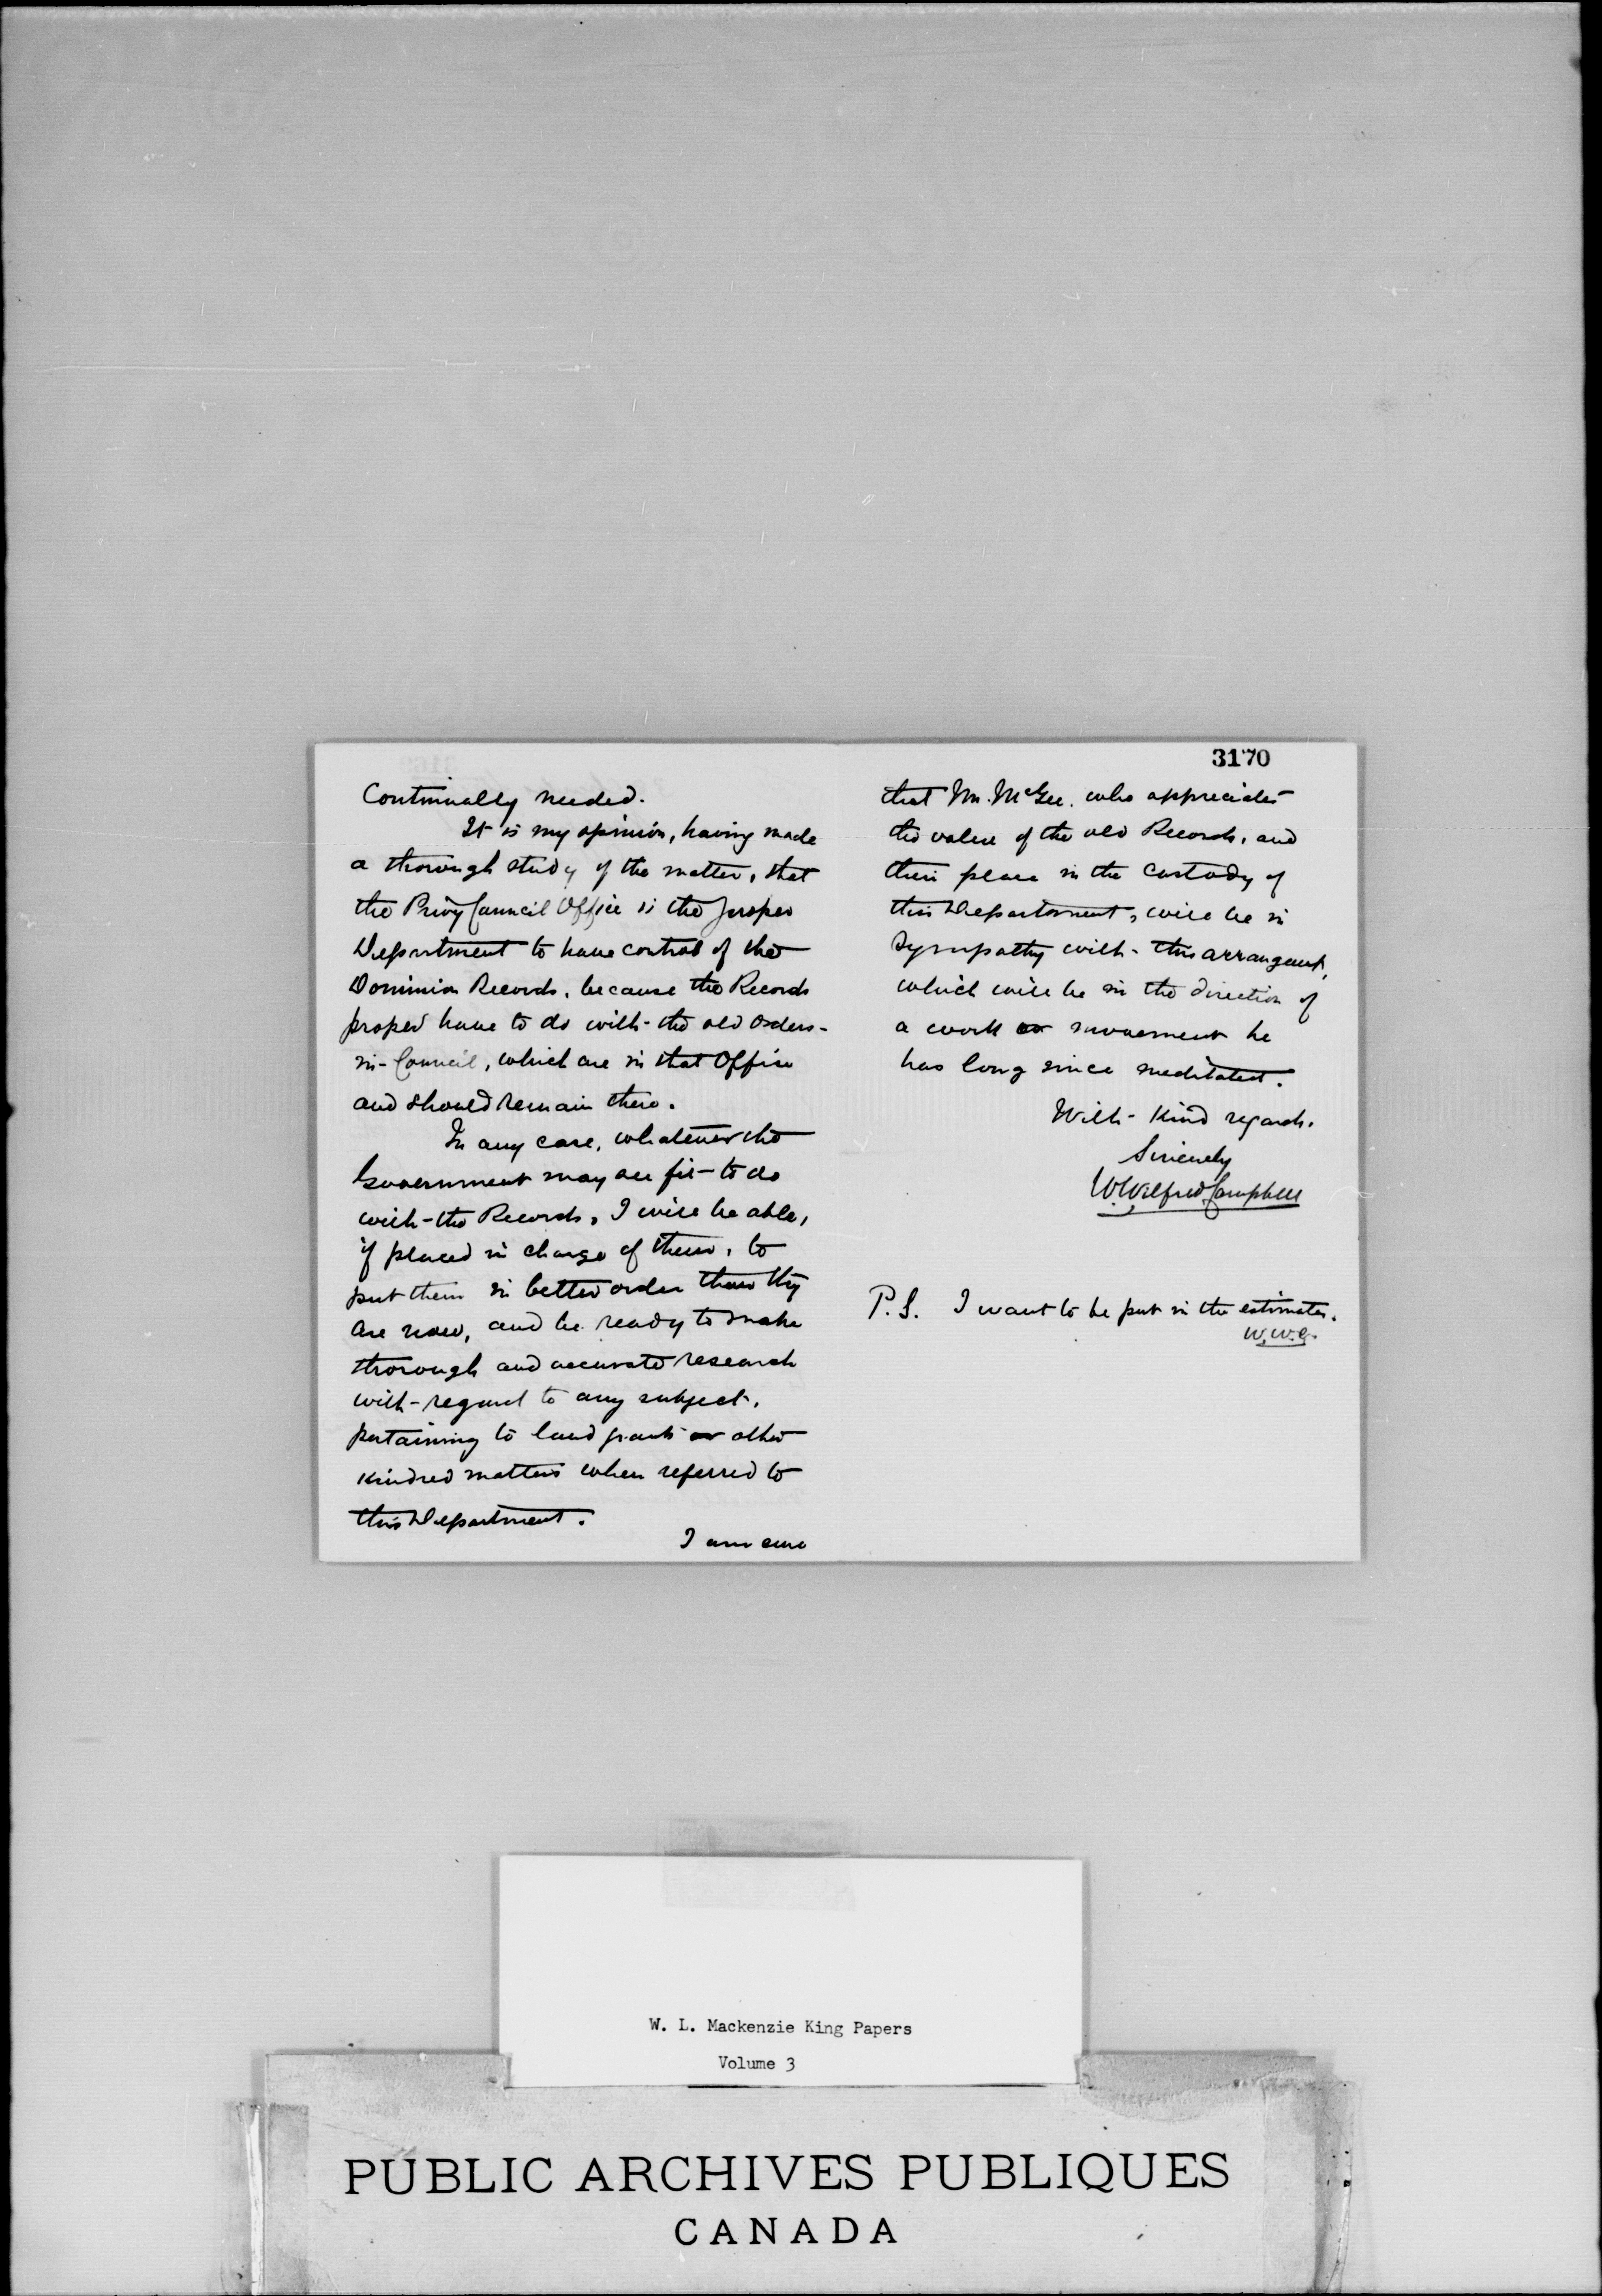 continually needed.
It is my opinion, having made
a thorough study of the matter, that
the Privy Council Office is the proper
Department to have control of the
Dominion Records, because the Records
proper have to do with the old Orders-
in-Council, which are in that Office
and should remain there.
In any case, whatever the
Government may see fit to do
with the Records, I will be able,
if placed in charge of them, to
put them in better order than they
are now, and be ready to make
thorough and accurate research
with regard to any subject,
pertaining to land grants or other
kindred matters when referred to
this Department.
I am sure
3170
that Mr. McGee, who appreciates
the value of the old Records, and
their place in the custody of
this Department, will be in
sympathy with this arrangement,
which will be in the direction of
a work or movement he
has long since meditated.
With kind regards.
Sincerely
W. Wilfred Campbell
P.S. I want to be put in the estimates.
W.W.C.
W. L. Mackenzie King Papers
Volume 3
PUBLIC ARCHIVES PUBLIQUES
CANADA